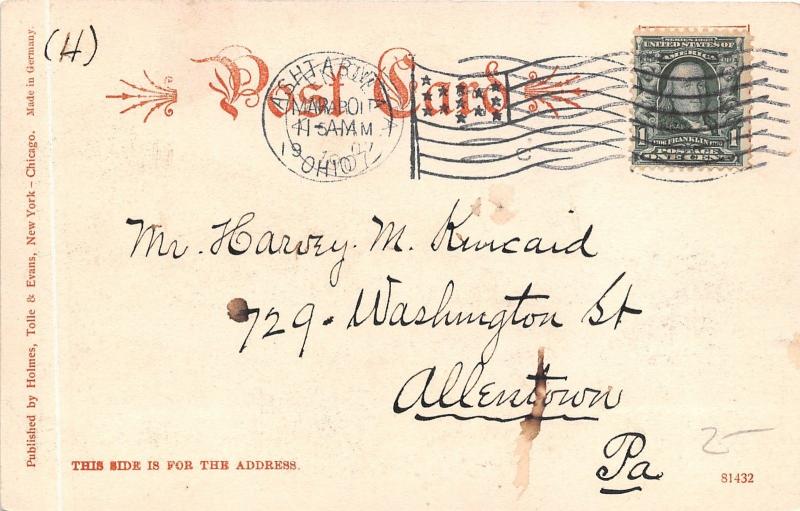 (H)
Post Card
ASHTABULA
OHIO
SERIES 1902
UNITED STATES OF
AMERICA
1 FRANKLIN 1
POSTAGE
ONE CENT
Mr. Harvey. M. Kincaid
729. Washington St
Allentown
Pa
2-
THIS SIDE IS FOR THE ADDRESS.
81432
Published by Holmes, Tolle & Evans, New York - Chicago. Made in Germany.